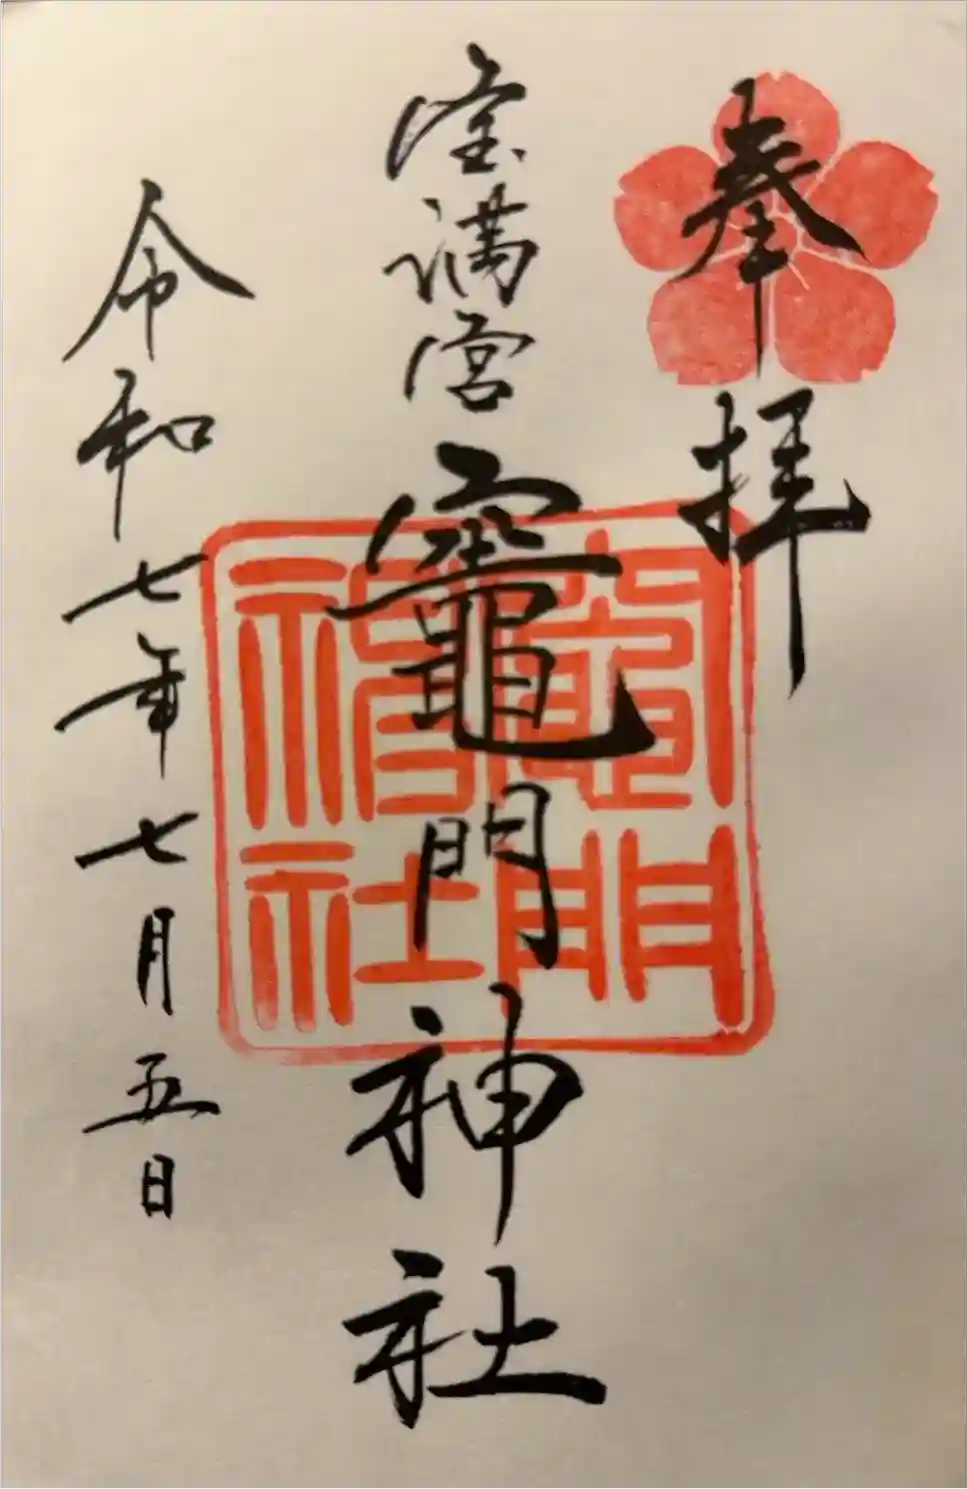 奉拝
宝満宮
竈門神社
竈門
神社
令和七年七月五日